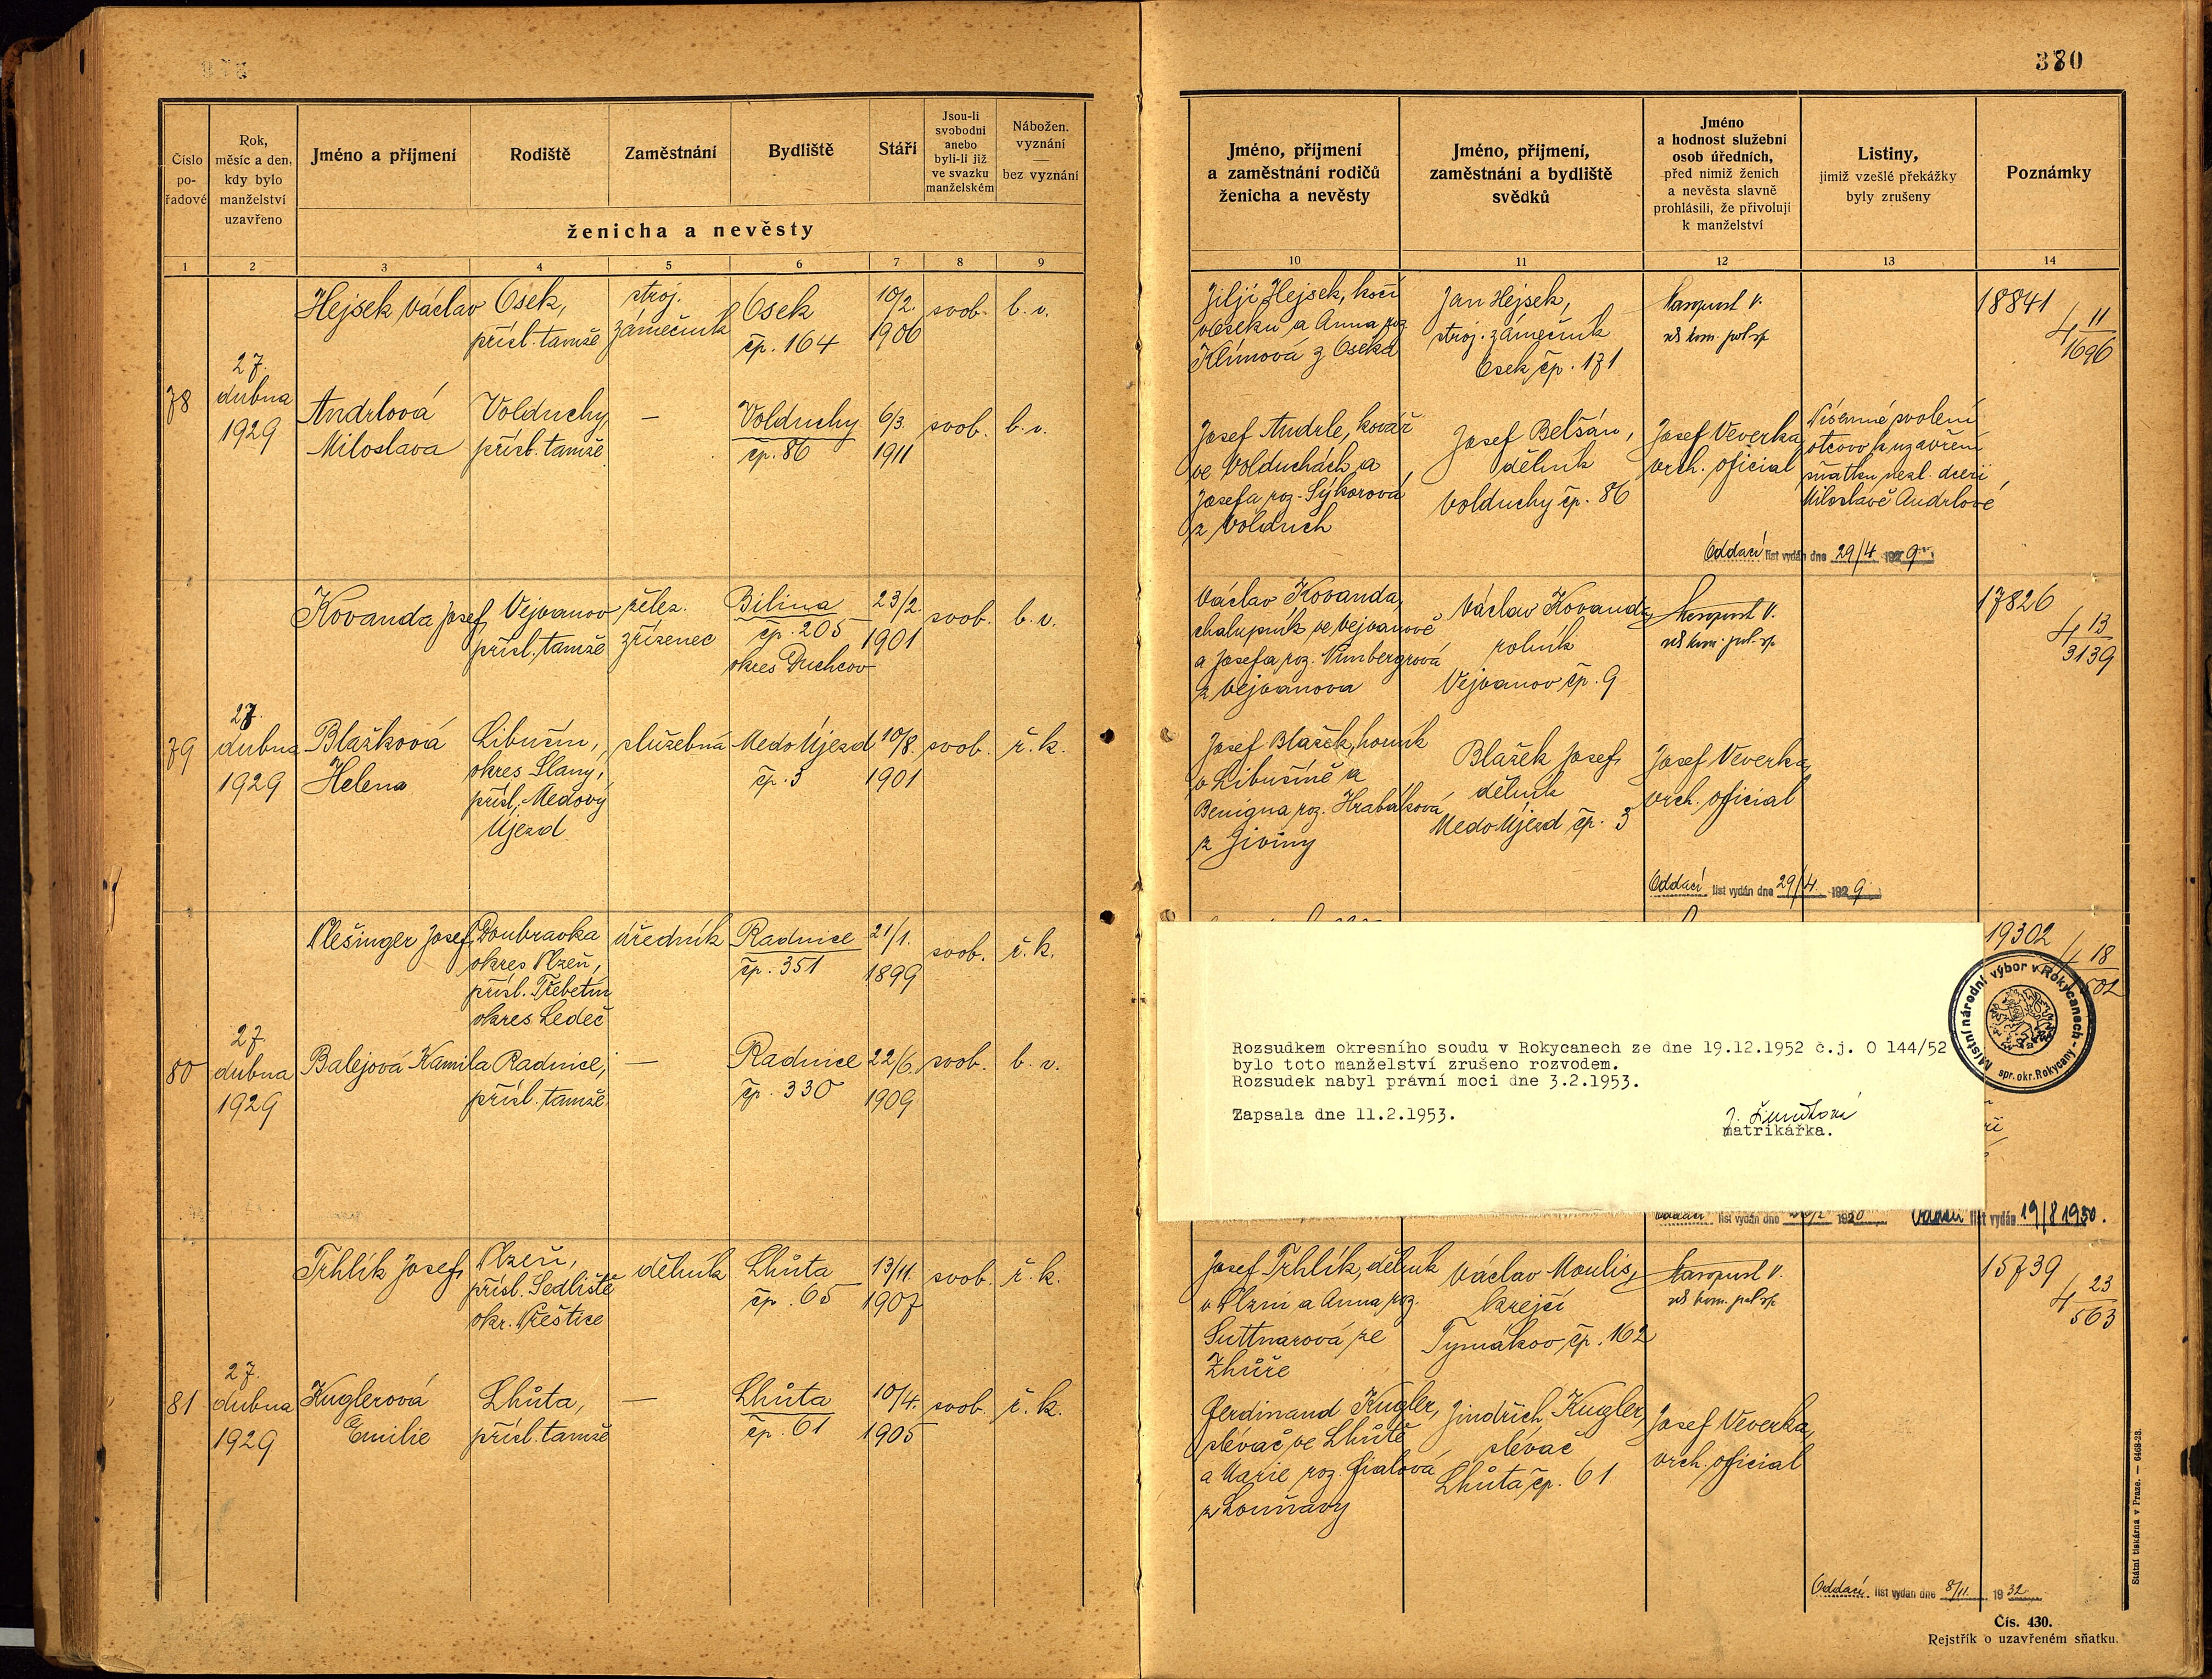 380
Číslo pořadové
Rok, měsíc a den, kdy bylo manželství uzavřeno
Jméno a příjmení
Rodiště
Zaměstnání
Bydliště
Stáří
Jsou-li svobodni anebo byli-li již ve svazku manželském
Nábožen. vyznání
bez vyznání
ženicha a nevěsty
1 2 3 4 5 6 7 8 9
Hejsek Václav
Osek,
přísl. tamže
stroj.
zámečník
Osek
čp. 164
10/2.
1906
svob.
b. v.
78
27.
dubna
1929
Andrlová
Miloslava
Volduchy,
přísl. tamže
—
Volduchy
čp. 86
6/3.
1911
svob.
b. v.
Kovanda Josef
Vejvanov
přísl. tamže
želez.
zřízenec
Bilina
čp. 205
okres Duchcov
23/2.
1901
svob.
b. v.
79
27.
dubna
1929
Blažková
Helena
Libušín,
okres Slaný,
přísl. Medový
Újezd
služebná
Medo Újezd
čp. 3
10/8.
1901
svob.
ř. k.
Plešinger Josef
Doubravka
okres Plzeň,
přísl. Třebětín
okres Ledeč
úředník
Radnice
čp. 351
21/1.
1899
svob.
ř. k.
80
27.
dubna
1929
Balejová Kamila
Radnice,
přísl. tamže
—
Radnice
čp. 330
22/6.
1909
svob.
b. v.
Trhlík Josef
Plzeň,
přísl. Sedliště
okr. Přeštice
dělník
Lhůta
čp. 65
13/11.
1907
svob.
ř. k.
81
27.
dubna
1929
Kuglerová
Emilie
Lhůta,
přísl. tamže
—
Lhůta
čp. 61
10/4.
1905
svob.
ř. k.
Jméno, příjmení
a zaměstnání rodičů
ženicha a nevěsty
Jméno, příjmení,
zaměstnání a bydliště
svědků
Jméno
a hodnost služební
osob úředních,
před nimiž ženich
a nevěsta slavně
prohlásili, že přivolují
k manželství
Listiny,
jimiž vzešlé překážky
byly zrušeny
Poznámky
10 11 12 13 14
Jiljí Hejsek, kočí
v Oseku a Anna roz.
Klímová z Oseka
Jan Hejsek,
stroj. zámečník
Osek čp. 171
18841
4 11
1696
Josef Andrle, kovář
ve Volduchách a
Josefa roz. Sýkorová
z Volduch
Josef Belšán,
dělník
Volduchy čp. 86
Josef Veverka,
vrch. oficial
Písemné svolení
otcovo k uzavření
sňatku nezl. dceři
Miloslavě Andrlové
Oddací list vydán dne 29/4 1929
Václav Kovanda,
chalupník ve Vejvanově
a Josefa roz.
z Vejvanova
Václav Kovanda,
rolník
Vejvanov čp. 9
17826
4 13
3139
Josef Blažek, horník
v Libušíně a
Benigna roz. Hrabáková
z Jiviny
Blažek Josef,
dělník
Medo Újezd čp. 3
Josef Veverka,
vrch. oficial
Oddací list vydán dne 29/4. 1929
19302
4 18
502
Místní národní výbor v Rokycanech - spr. okr. Rokycany -
Rozsudkem okresního soudu v Rokycanech ze dne 19.12.1952 č.j. O 144/52
bylo toto manželství zrušeno rozvodem.
Rozsudek nabyl právní moci dne 3.2.1953.
Zapsala dne 11.2.1953.
matrikářka.
list vydán dne 1930
Oddací list vydán 19/8 1950.
Josef Trhlík, dělník
v Plzni a Anna roz.
Suttnarová ze
Zhůře
Václav Moulis,
krejčí
Tymákov čp. 162
15739
4 23
563
Ferdinand Kugler,
slévač ve Lhůtě
a Marie roz. Fialová
z Louňavy
Jindřich Kugler,
slévač
Lhůta čp. 61
Josef Veverka,
vrch. oficial
Oddací list vydán dne 8/11. 1932
Čís. 430.
Rejstřík o uzavřeném sňatku.
Státní tiskárna v Praze. — 6468-28.